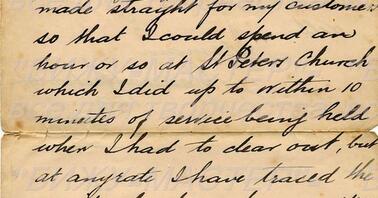 made straight for my customer
so that I could spend an
hour or so at St Peters Church
which I did up to within 10
minutes of service being held
when I had to clear out, but
at anyrate I have traced the